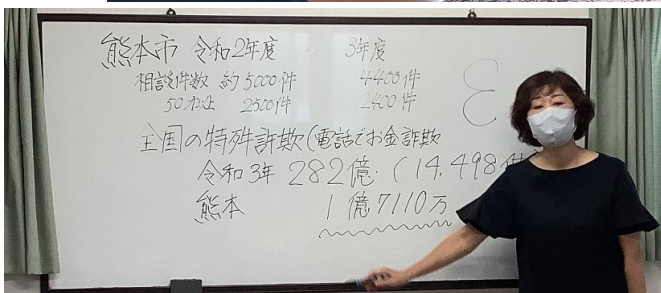 熊本市 令和2年度 3年度
相談件数 約5000件 4400件
50才以上 2500件 2400件
全国の特殊詐欺(電話でお金詐欺
令和3年 282億 (14,498件)
熊本 1億7110万